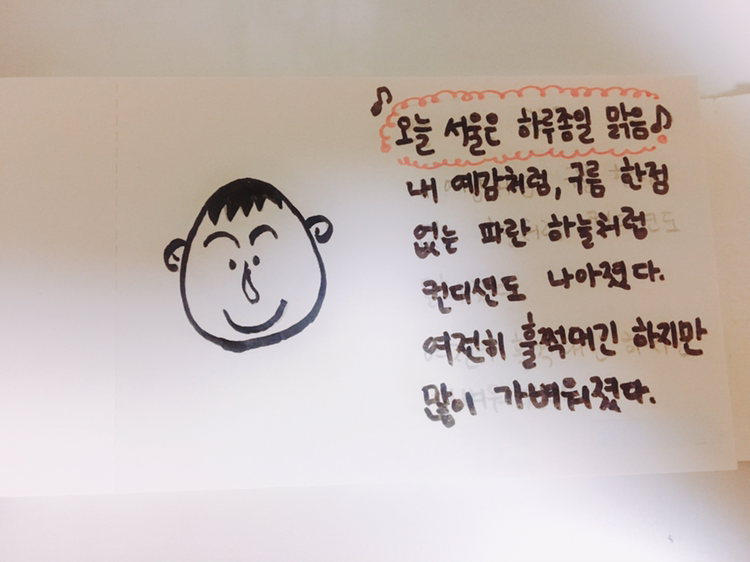 ♪ 오늘 서울은 하루종일 맑음♪
내 예감처럼, 구름 한점
없는 파란 하늘처럼
컨디션도 나아졌다.
여전히 훌쩍대긴 하지만
많이 가벼워졌다.